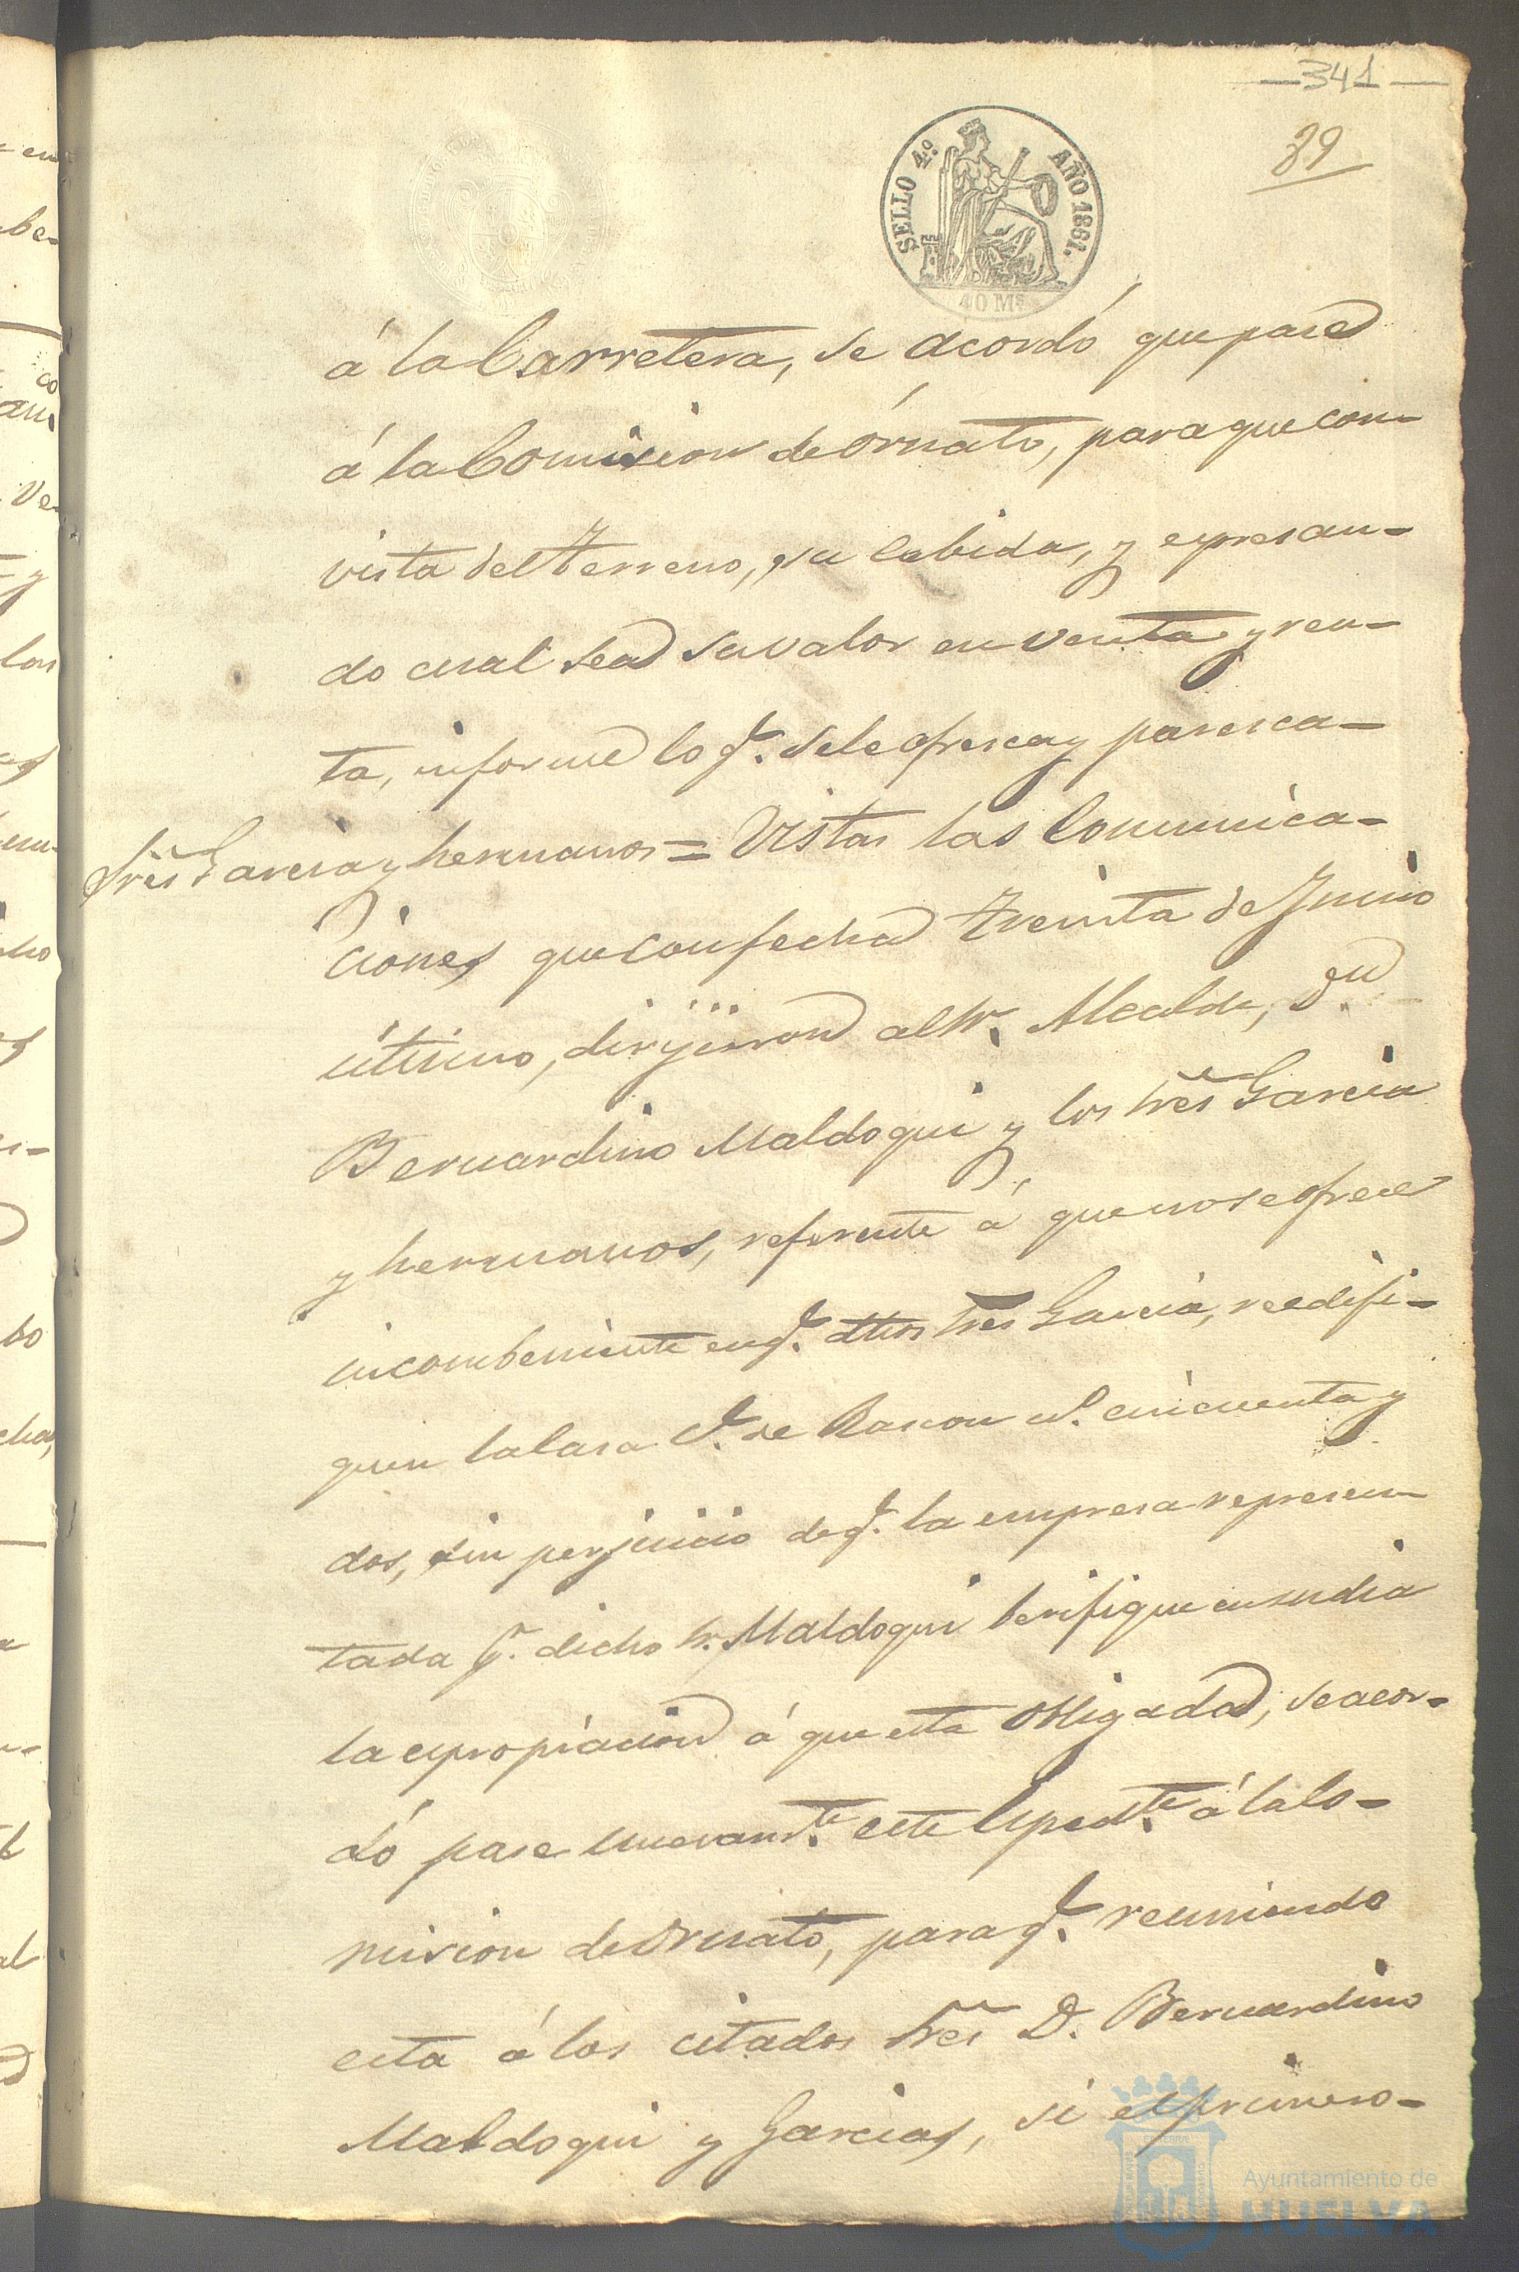 341
39
SELLO 4º. AÑO 1861.
40 Ms.
á la Carretera, se acordó que pase
á la Comision de órnato, para que con
vista del terreno, su cabida, y espresan-
do cual sea su valor en venta y ren-
ta, informe lo q.e se le ofresca y paresca-
Sres Garcia y hermanos = Vistas las Comunica-
ciones que con fecha treinta de Junio
último, dirijieron al Sr. Alcalde, Dn
Bernardino Maldoqui y los Sres Garcia
y hermanos, referente á que no se ofrece
incombeniente en q.e dhos Sres Garcia, reedifi-
quen la Casa C.e de Rascon nº. cincuenta y
dos, sin perjuicio de q.e la empresa represen-
tada p.r dicho Sr. Maldoqui berifique en su dia
la espropiacion á que está obligada, se acor-
dó pase nuevam.te este Esped.te á la Co-
mision de Ornato, para q.e reuniendo
esta á los citados Sres D. Bernardino
Maldoqui y Garcias, si el primero-
Ayuntamiento de
HUELVA